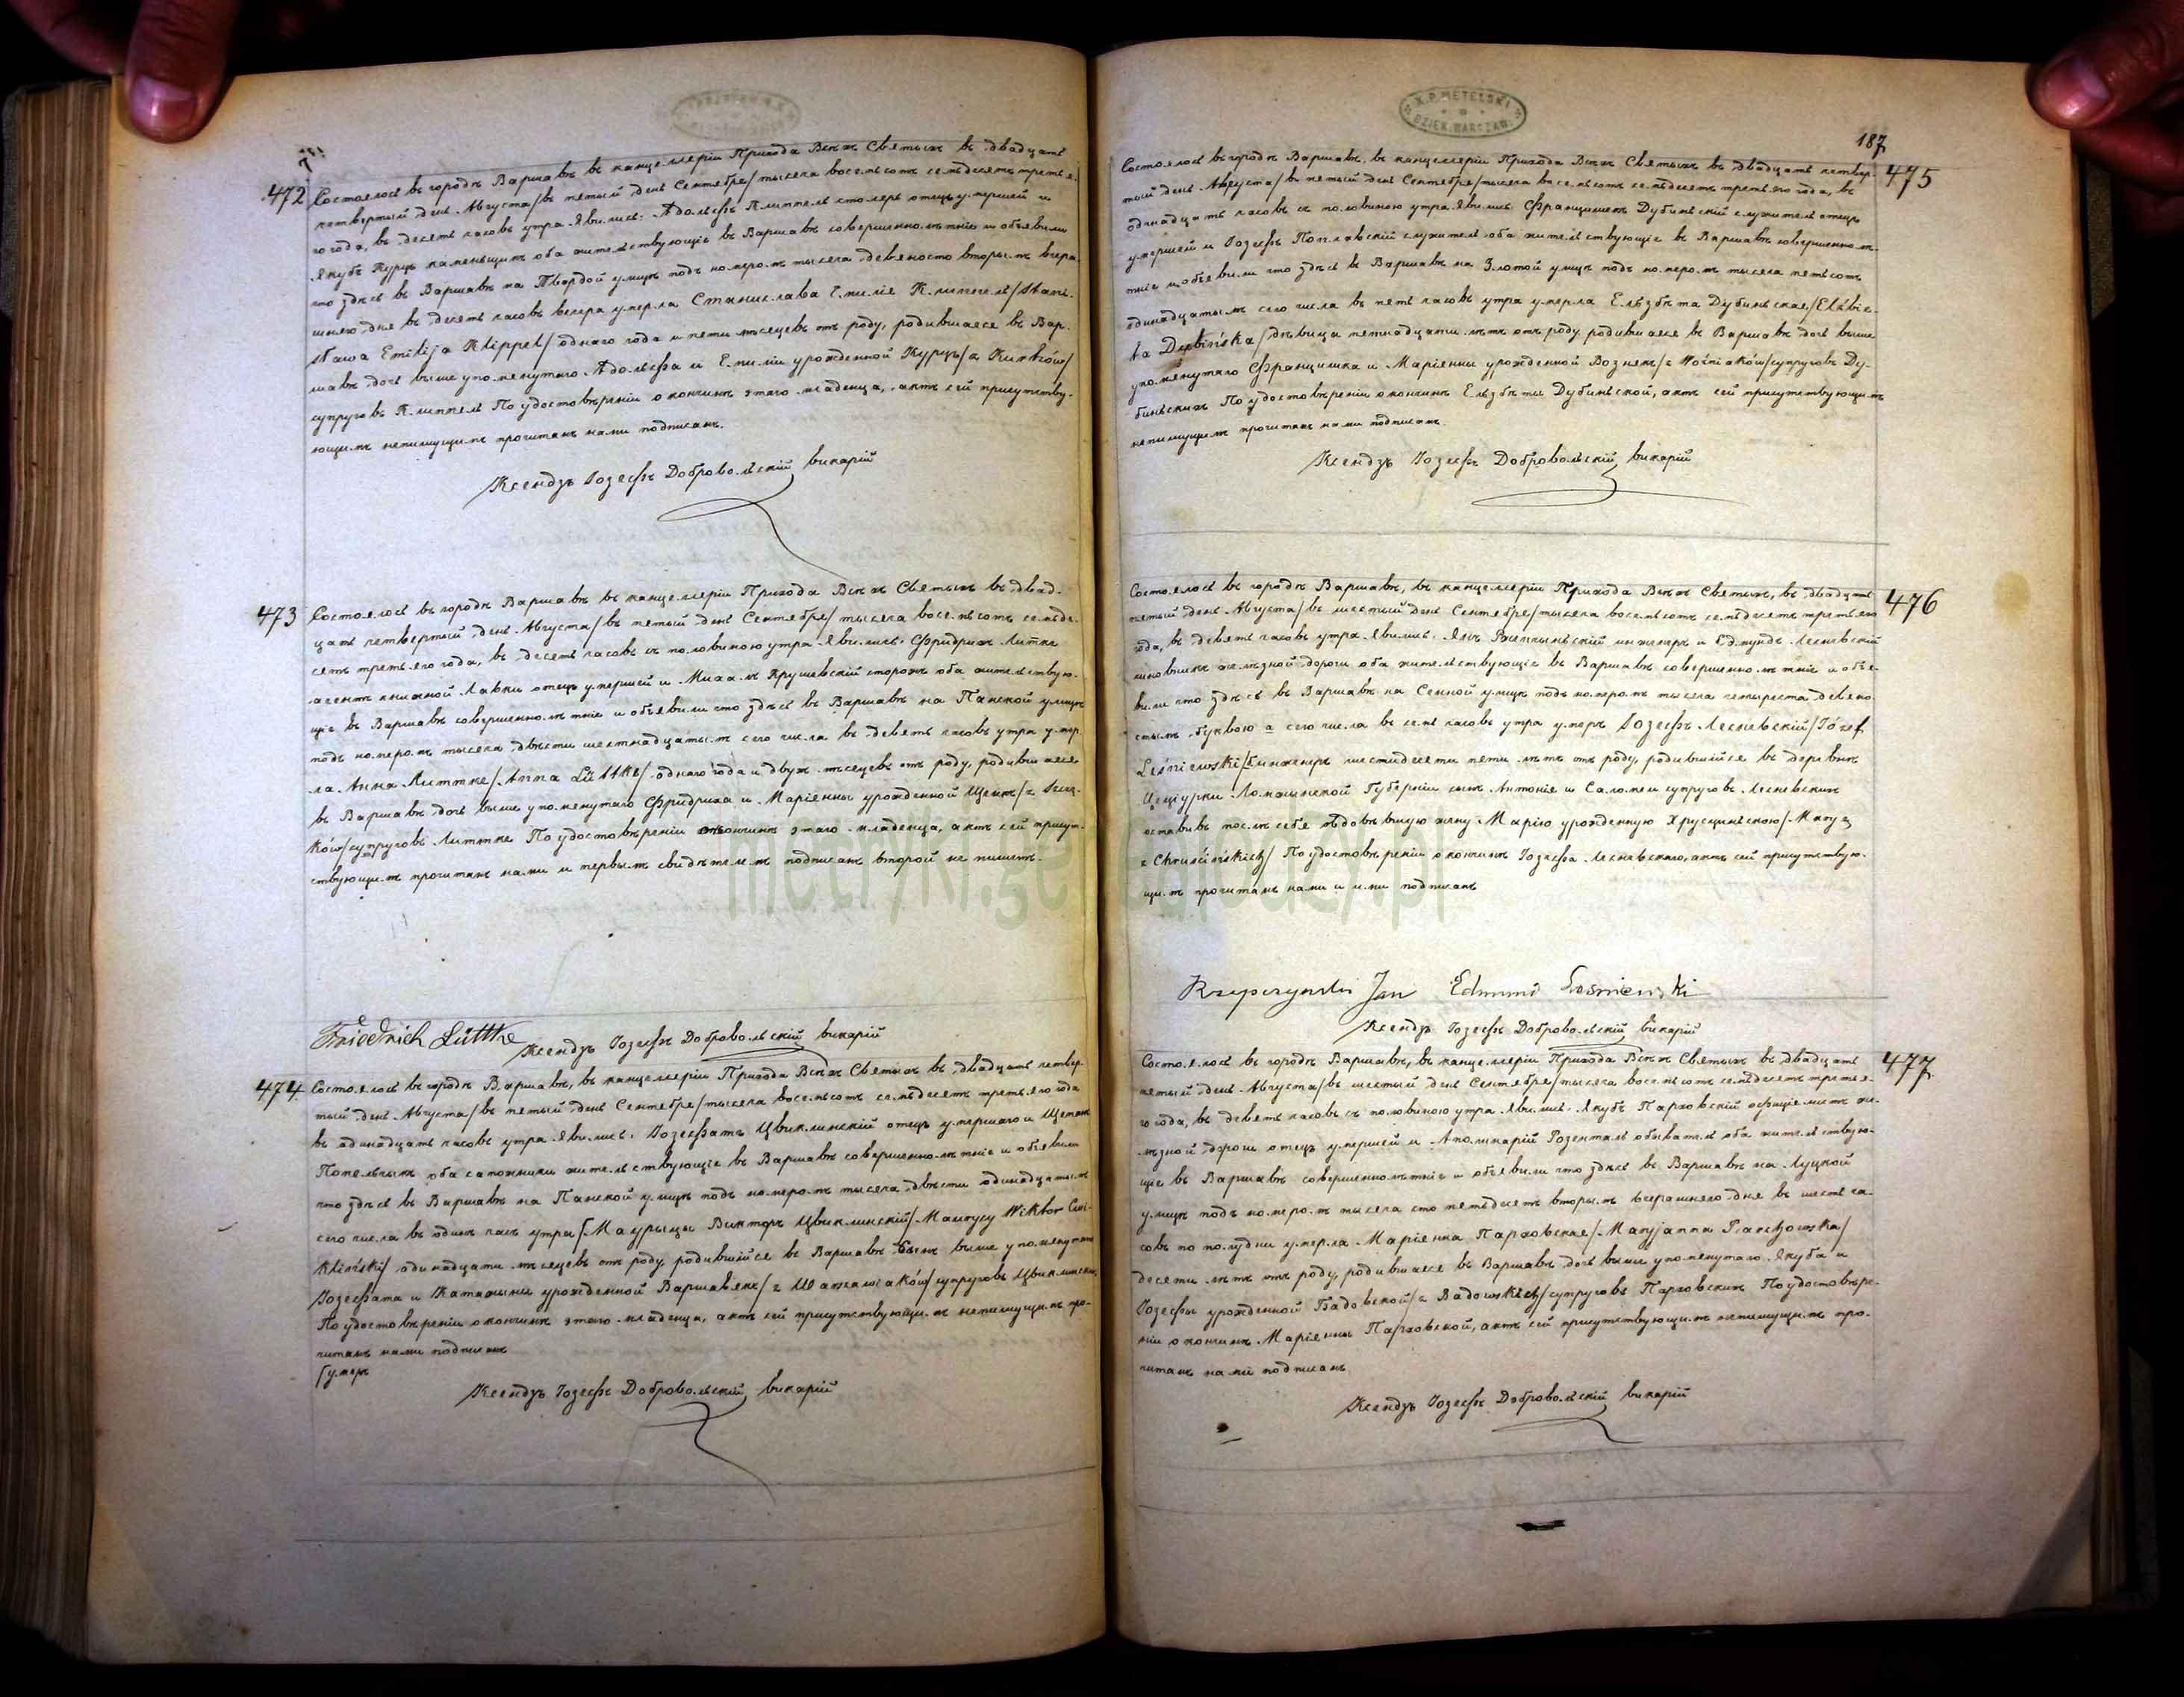 472
Состоялось въ городѣ Варшавѣ въ канцеляріи Прихода Всѣхъ Святыхъ въ двадцать
четвертый день Августа/въ пятый день Сентября/тысяча восемьсотъ семьдесятъ третья-
го года, въ десять часовъ утра. Явились: Адольфъ Клиппель столяръ отецъ умершей и
Якубъ Курцъ каменьщикъ оба жительствующіе въ Варшавѣ совершеннолѣтніе и объявили
что здѣсь въ Варшавѣ на Твардой улицѣ подъ номеромъ тысяча девяносто вторымъ вчера-
шняго дня въ десять часовъ вечера умерла Станислава Емилія Клиппель/Stani-
sława Emilija Klippel/одного года и пяти мѣсяцевъ отъ роду, родившаяся въ Вар-
шавѣ дочь выше упомянутаго Адольфа и Емиліи урожденной Курцъ/z Kurtzów/
супруговъ Клиппель По удостовѣреніи о кончинѣ этаго младенца, актъ сей присутству-
ющимъ непишущимъ прочитанъ нами подписанъ.
Ксендзъ Іозефъ Добровольскій викарій
473
Состоялось въ городѣ Варшавѣ въ канцеляріи Прихода Всѣхъ Святыхъ въ двад-
цать четвертый день Августа/въ пятый день Сентября/тысяча восемьсотъ семьде-
сятъ третьяго года, въ десять часовъ съ половиною утра. Явились: Фридрихъ Литтке
агентъ книжной лавки отецъ умершей и Михалъ Крушевскій сторожъ оба жительствую-
щіе въ Варшавѣ совершеннолѣтніе и объявили что здѣсь въ Варшавѣ на Панской улицѣ
подъ номеромъ тысяча двѣсти шестнадцатымъ сего числа въ девять часовъ утра умер-
ла Анна Литтке/Anna Lüttke/одного года и двухъ мѣсяцевъ отъ роду, родившаяся
въ Варшавѣ дочь выше упомянутаго Фридриха и Маріянны урожденной
супруговъ Литтке По удостовѣреніи о кончинѣ этаго младенца, актъ сей присут-
ствующимъ прочитанъ нами и первымъ свидѣтелемъ подписанъ второй не пишетъ.
Friedrich Lüttke
Ксендзъ Іозефъ Добровольскій викарій
474
Состоялось въ городѣ Варшавѣ, въ канцеляріи Прихода Всѣхъ Святыхъ въ двадцать четвер-
тый день Августа/въ пятый день Сентября/тысяча восемьсотъ семьдесятъ третьяго года
въ одинадцать часовъ утра. Явились: Іозефатъ Цвиклинскій отецъ умершаго и Щепанъ
оба сапожники жительствующіе въ Варшавѣ совершеннолѣтніе и объявили
что здѣсь въ Варшавѣ на Панской улицѣ подъ номеромъ тысяча двѣсти одинадцатымъ
сего числа въ одинъ часъ утра Маурыцы Викторъ Цвиклинскій/Maurycy Wiktor Cwi-
kliński/одинадцати мѣсяцевъ отъ роду, родившійся въ Варшавѣ сынъ выше упомянутаго
Іозефата и Катажыны урожденной Варшавякъ/z Warszawiaków/супруговъ Цвиклинскихъ
По удостовѣреніи о кончинѣ этаго младенца, актъ сей присутствующимъ непишущимъ про-
читанъ нами подписанъ
умеръ
Ксендзъ Іозефъ Добровольскій викарій
X.P. METELSKI
DZIEK. WARSZAW.
187
475
Состоялось въ городѣ Варшавѣ, въ канцеляріи Прихода Всѣхъ Святыхъ въ двадцать четвер-
тый день Августа/въ пятый день Сентября/тысяча восемьсотъ семьдесятъ третьяго года, въ
одинадцать часовъ съ половиною утра. Явились: Францишекъ Дубиньскій служитель отецъ
умершей и Іозефъ Поплавскій служитель оба жительствующіе въ Варшавѣ совершеннолѣ-
тніе и объявили что здѣсь въ Варшавѣ на Злотой улицѣ подъ номеромъ тысяча пятьсотъ
одинадцатымъ сего числа въ пять часовъ утра умерла Ельзбѣта Дубиньская/Elżbie-
ta Dubińska/дѣвица пятнадцати лѣтъ отъ роду, родившаяся въ Варшавѣ дочь выше
упомянутаго Францишка и Маріянны урожденной Вознякъ/z Woźniaków/супруговъ Ду-
биньскихъ По удостовѣреніи о кончинѣ Ельзбѣты Дубиньской, актъ сей присутствующимъ
непишущимъ прочитанъ нами подписанъ.
Ксендзъ Іозефъ Добровольскій викарій
476
Состоялось въ городѣ Варшавѣ, въ канцеляріи Прихода Всѣхъ Святыхъ, въ двадцать
пятый день Августа/въ шестый день Сентября/тысяча восемьсотъ семьдесятъ третьяго
года, въ девять часовъ утра. Явились: Янъ инженеръ и Едмундъ Лесневскій
чиновникъ желѣзной дороги оба жительствующіе въ Варшавѣ совершеннолѣтніе и объя-
вили что здѣсь въ Варшавѣ на Сенной улицѣ подъ номеромъ тысяча четыреста девяно-
стымъ буквою а сего числа въ семь часовъ утра умеръ Іозефъ Лесневскій/Józef
Leśniewski/инженеръ шестидесяти пяти лѣтъ отъ роду, родившійся въ деревнѣ
Ломжынской Губерніи сынъ Антонія и Саломеи супруговъ Лесневскихъ
оставивъ послѣ себя вдовѣвшую жену Марію урожденную Хрусциньскою/Maryą
z Chruścińskich/ По удостовѣреніи о кончинѣ Іозефа Лесневскаго, актъ сей присутствую-
щимъ прочитанъ нами и ими подписанъ
Rzepczyński Jan Edmund Leśniewski
Ксендзъ Іозефъ Добровольскій викарій
477
Состоялось въ городѣ Варшавѣ, въ канцеляріи Прихода Всѣхъ Святыхъ въ двадцать
пятый день Августа/въ шестый день Сентября/тысяча восемьсотъ семьдесятъ третья-
го года, въ девять часовъ съ половиною утра. Явились: Якубъ Парховскій оффиціялистъ же-
лѣзной дороги отецъ умершей и Аполинарій Розенталь обыватель оба жительствую-
щіе въ Варшавѣ совершеннолѣтніе и объявили что здѣсь въ Варшавѣ на Луцкой
улицѣ подъ номеромъ тысяча сто пятьдесятъ вторымъ вчерашняго дня въ шесть ча-
совъ по полудни умерла Маріянна Парховская/Maryjanna Parchowska/
десяти лѣтъ отъ роду, родившаяся въ Варшавѣ дочь выше упомянутаго Якуба и
Іозефы урожденной Бадовской/z Badowskich/супруговъ Парховскихъ По удостовѣре-
ніи о кончинѣ Маріянны Парховской, актъ сей присутствующимъ непишущимъ про-
читанъ нами подписанъ.
Ксендзъ Іозефъ Добровольскій викарій